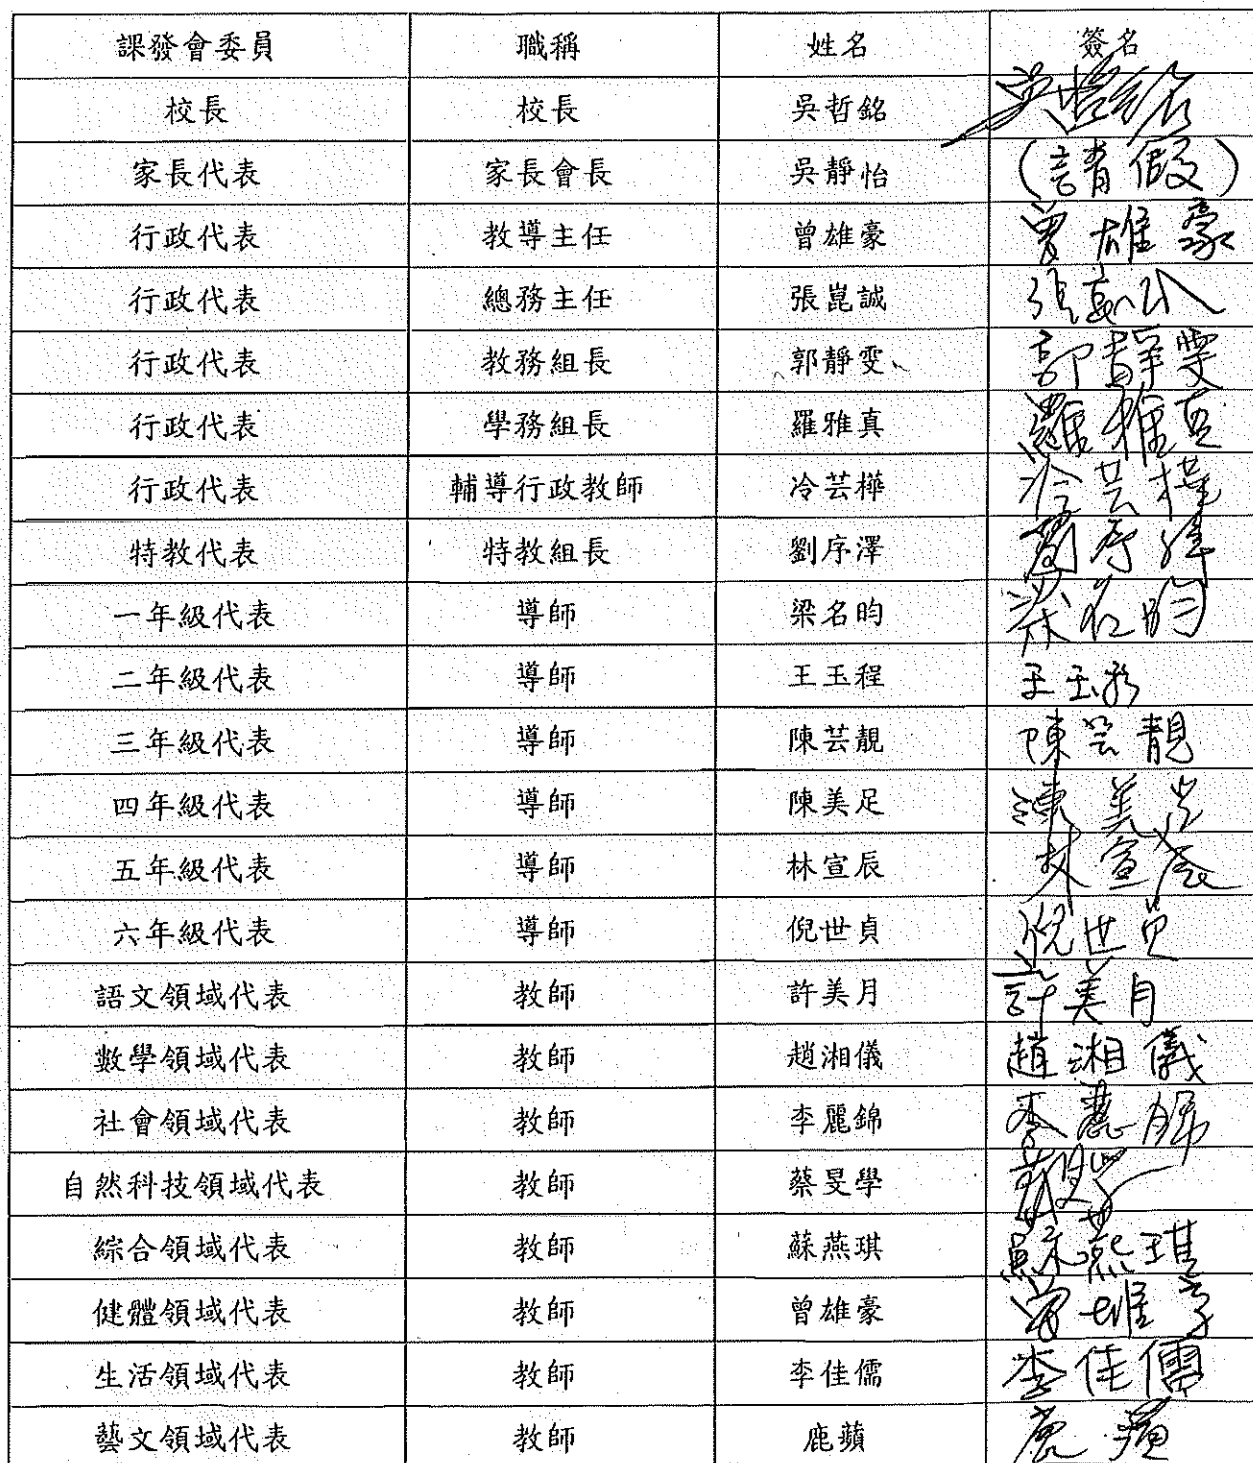 課發會委員 職稱 姓名 簽名
校長 校長 吳哲銘 吳哲銘
家長代表 家長會長 吳靜怡 (請假)
行政代表 教導主任 曾雄豪 曾雄豪
行政代表 總務主任 張崑誠
行政代表 教務組長 郭靜雯 郭靜雯
行政代表 學務組長 羅雅真 羅雅真
行政代表 輔導行政教師 冷芸樺 冷芸樺
特教代表 特教組長 劉序澤
一年級代表 導師 梁名昀 梁名昀
二年級代表 導師 王玉程 王玉程
三年級代表 導師 陳芸靚 陳芸靚
四年級代表 導師 陳美足 陳美足
五年級代表 導師 林宣辰 林宣辰
六年級代表 導師 倪世貞 倪世貞
語文領域代表 教師 許美月 許美月
數學領域代表 教師 趙湘儀 趙湘儀
社會領域代表 教師 李麗錦
自然科技領域代表 教師 蔡旻學
綜合領域代表 教師 蘇燕琪 蘇燕琪
健體領域代表 教師 曾雄豪 曾雄豪
生活領域代表 教師 李佳儒 李佳儒
藝文領域代表 教師 鹿蘋 鹿蘋